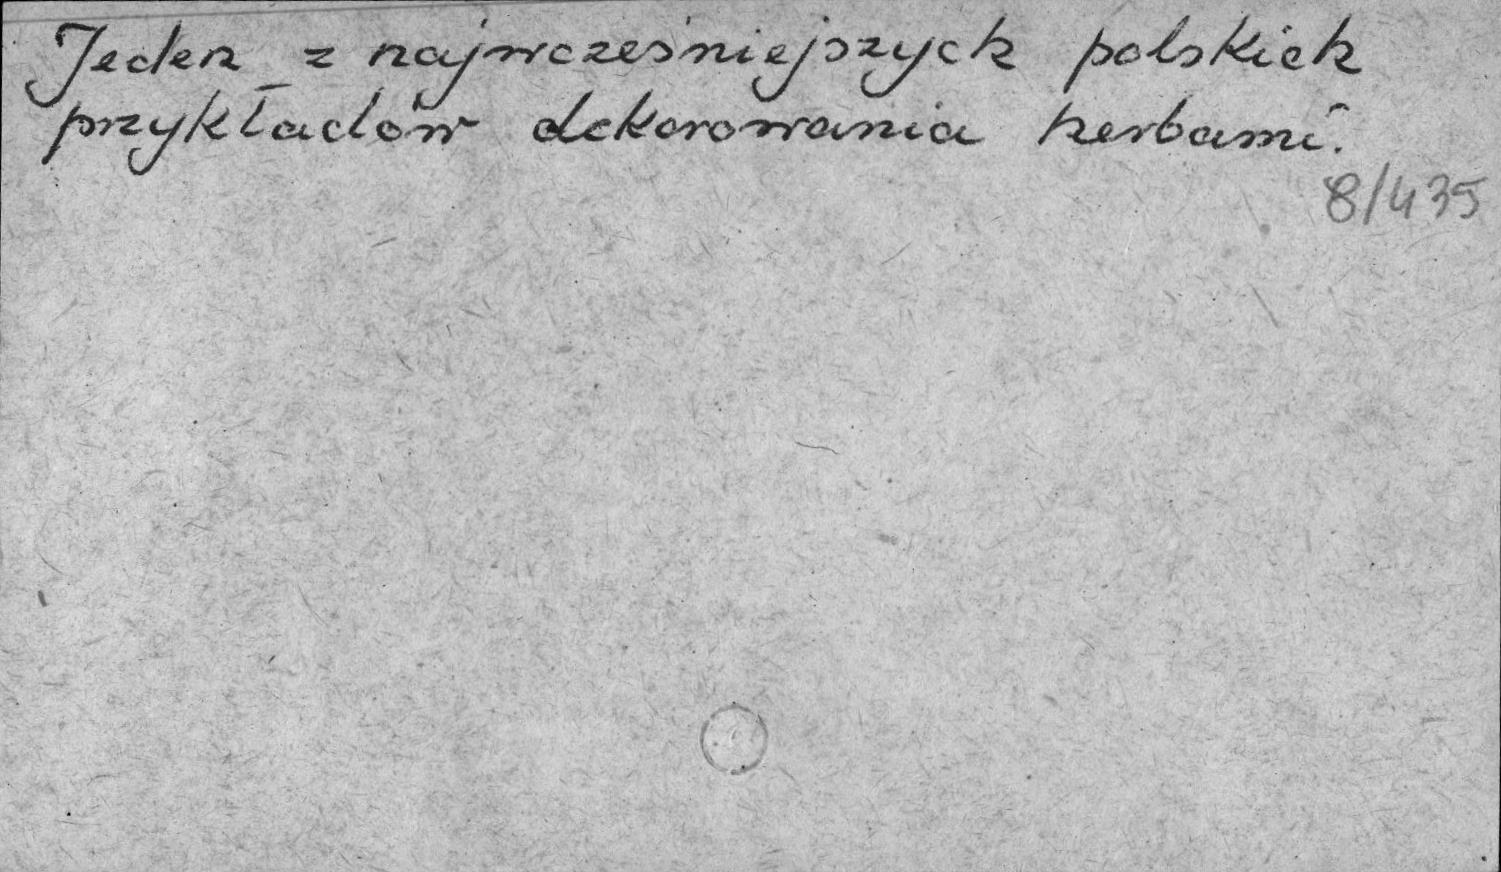 Jeden z najwcześniejszych polskich
przykładów dekorowania herbami.
8/435